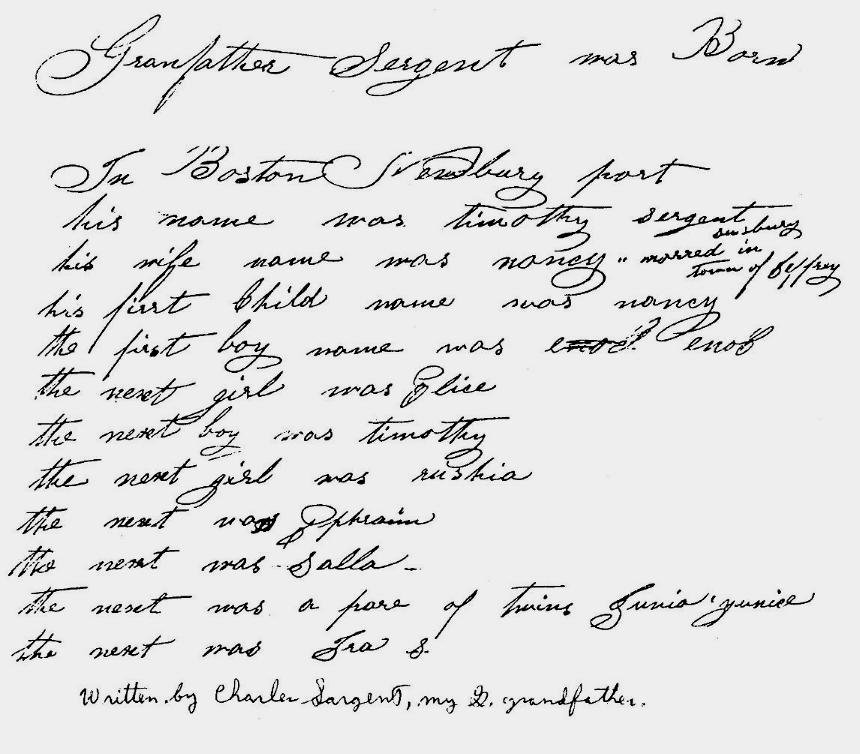 Granfather Sergent was Born
In Boston Newbury port
his name was timothy sergent
his wife name was nancy " marred in susbury
town of Jeffrey
his first Child name was nancy
the first boy name was enob
the next girl was Elice
the next boy was timothy
the next girl was rushia
the next was Ephraim
the next was Salla -
the next was a pare of twins Junia yunice
the next was Ira S.
Written by Charles Sargent, my G. grandfather.